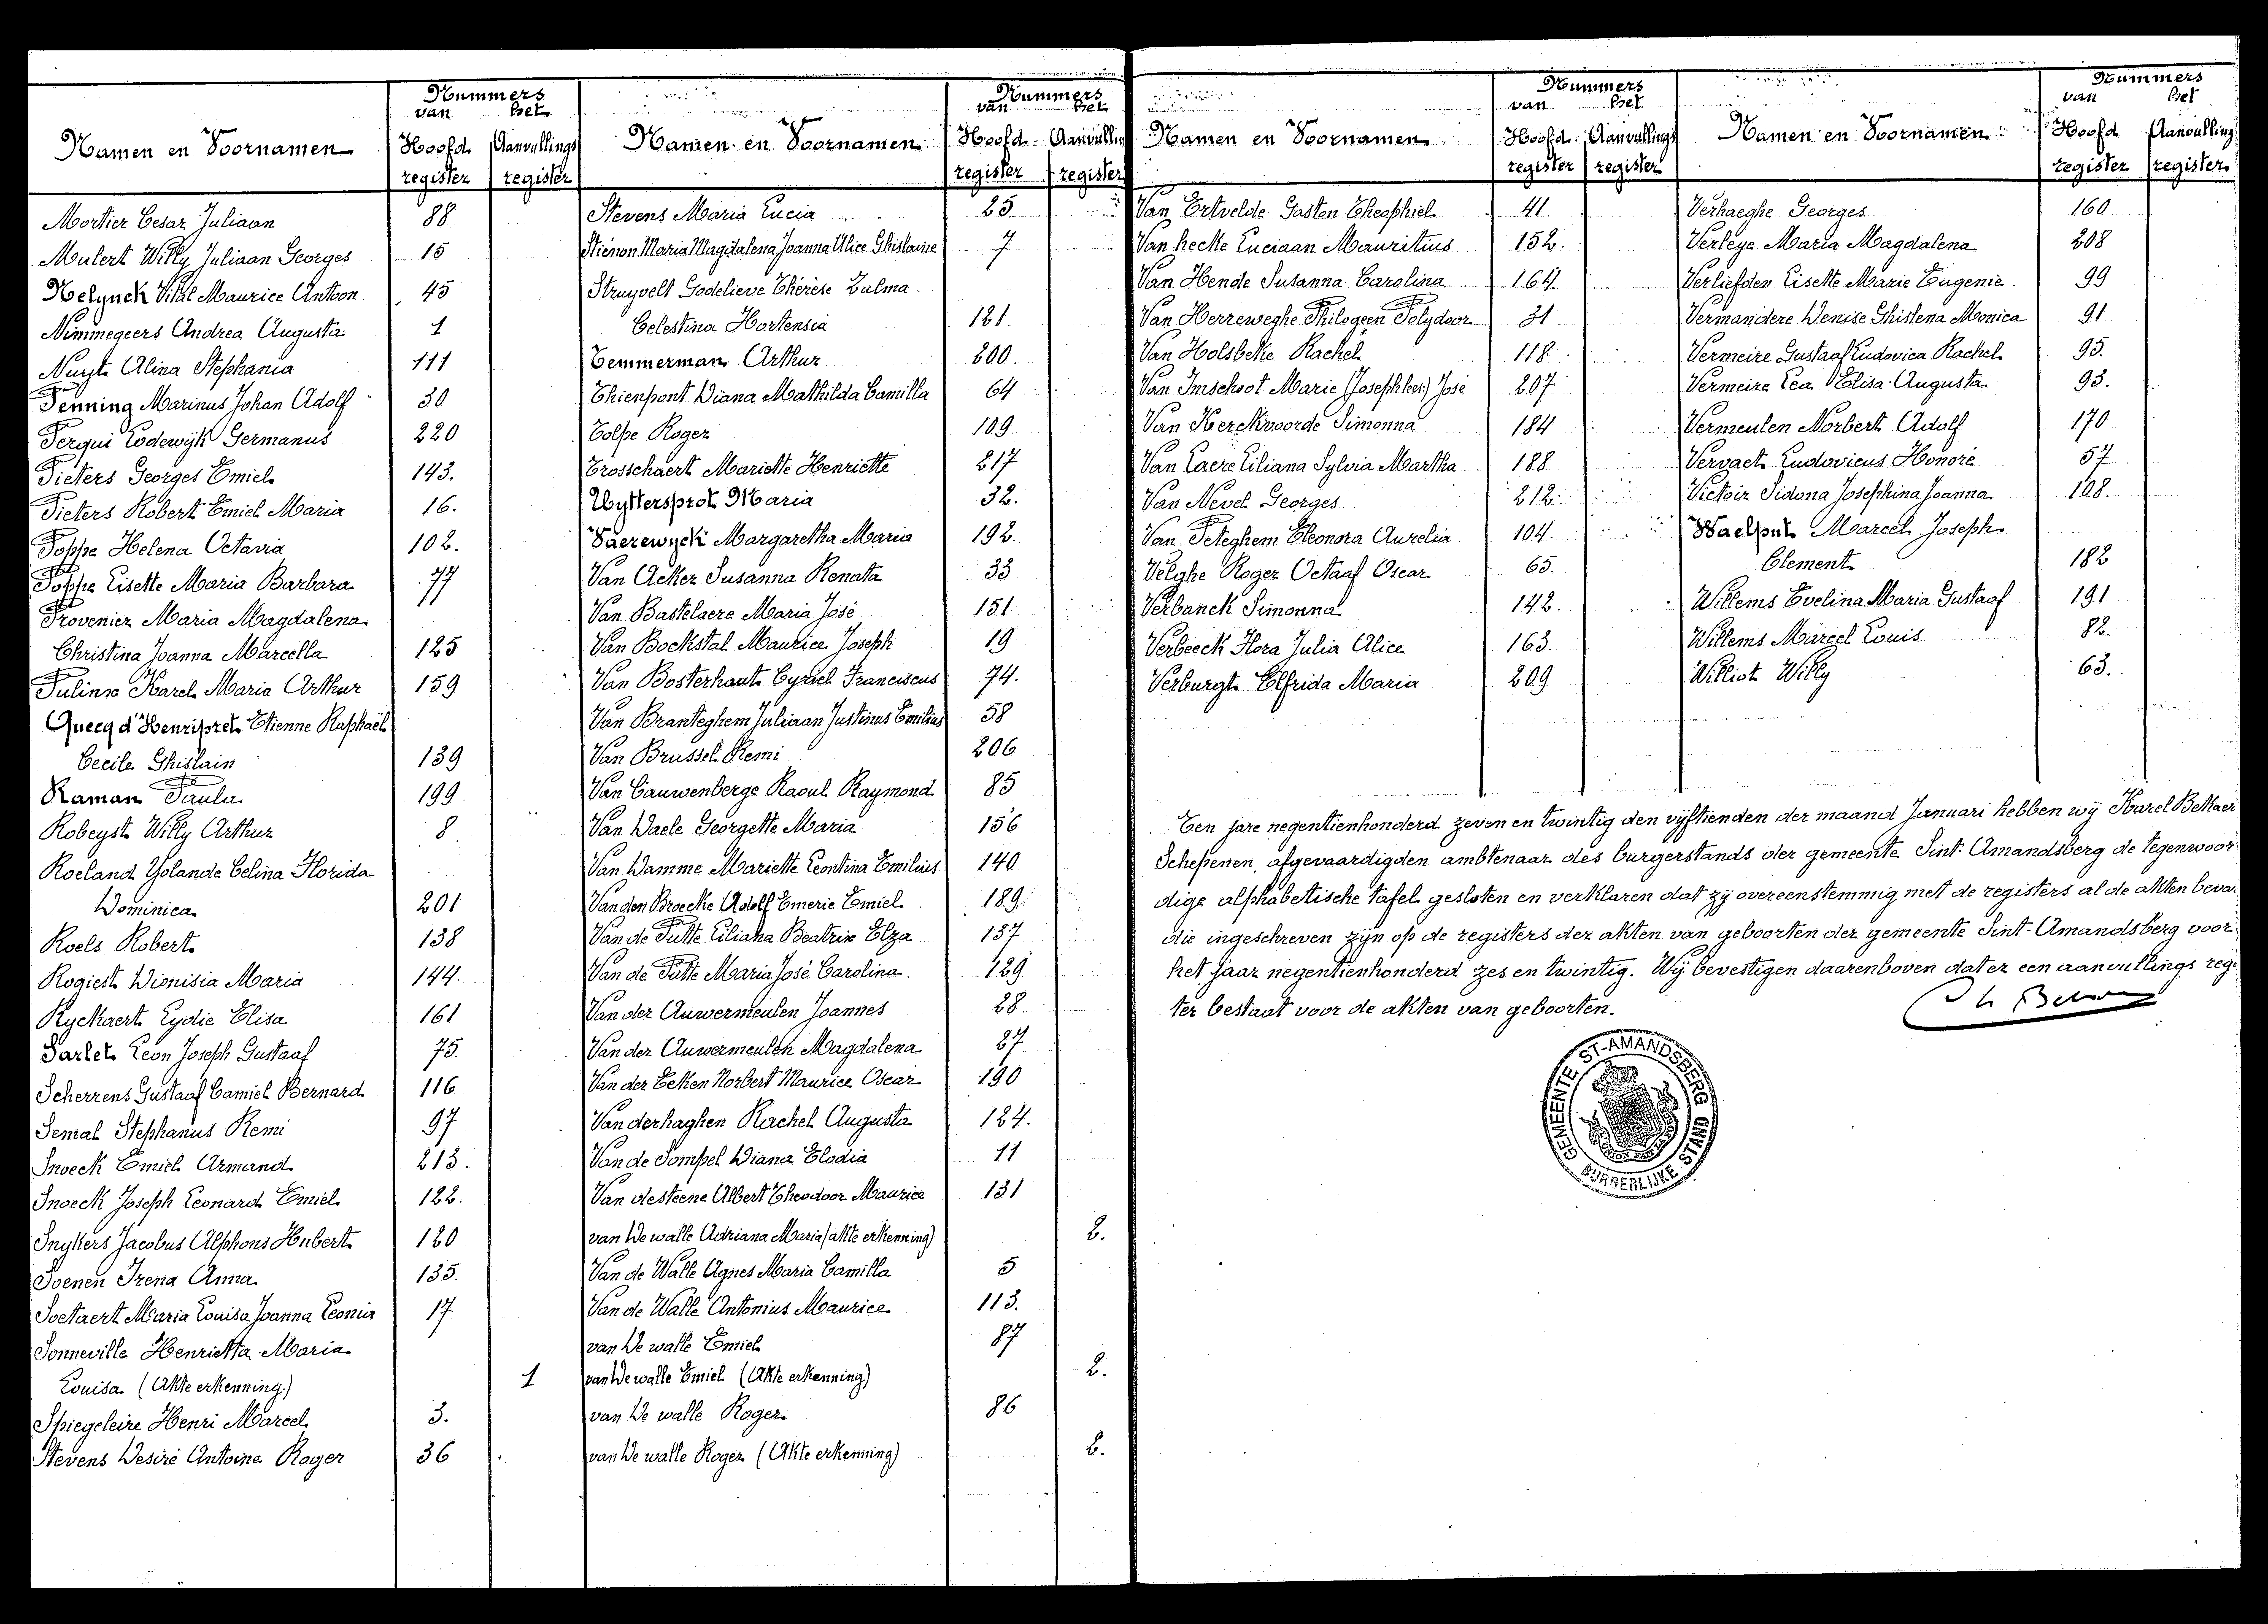 Nummers
van het
Namen en Voornamen Hoofd. Aanvullings
register register
Mortier Cesar Juliaan 88
Mulert Willy Juliaan Georges 15
Nelynck Vital Maurice Antoon 45
Nimmegeers Andrea Augusta 1
Nuyt Alina Stephania 111
Penning Marinus Johan Adolf 30
Perqui Lodewijk Germanus 220
Pieters Georges Emiel 143.
Pieters Robert Emiel Maria 16.
Poppe Helena Octavia 102.
Poppe Lisette Maria Barbara 77
Provenier Maria Magdalena
Christina Joanna Marcella 125
Pulinx Karel Maria Arthur 159
Quecq d'Henripret Etienne Raphaël
Cecile Ghislain 139
Raman Paula 199
Robeyst Willy Arthur 8
Roeland Yolande Celina Florida
Dominica 201
Roels Robert 138
Rogiest Dionisia Maria 144
Ryckaert Lydie Elisa 161
Sarlet Leon Joseph Gustaaf 75.
Scherrens Gustaaf Camiel Bernard 116
Semal Stephanus Remi 97
Snoeck Emiel Armand 213.
Snoeck Joseph Leonard Emiel 122.
Snykers Jacobus Alphons Hubert 120
Soenen Irena Anna 135.
Soetaert Maria Louisa Joanna Leonia 17
Sonneville Henrietta Maria
Louisa (Akte erkenning) 1
Spiegeleire Henri Marcel 3.
Stevens Desiré Antoine Roger 36
Nummers
van het
Namen en Voornamen Hoofd Aanvulling
register register
Stevens Maria Lucia 25
Stiénon Maria Magdalena Joanna Alice Ghislaine 7
Struyvelt Godelieve Thérèse Zulma
Celestina Hortensia 121.
Temmerman Arthur 200
Thienpont Diana Mathilda Camilla 64
Tolpe Roger 109
Trosschaert Mariette Henriette 217
Uyttersprot Maria 32.
Vaerewyck Margaretha Maria 192.
Van Acker Susanna Renata 33
Van Bastelaere Maria José 151
Van Bockstal Maurice Joseph 19
Van Bosterhout Cyriel Franciscus 74.
Van Branteghem Juliaan Justinus Emilius 58
Van Brussel Remi 206
Van Cauwenberge Raoul Raymond 85
Van Daele Georgette Maria 156
Van Damme Mariette Leontina Emilius 140
Van den Broecke Adolf Emerie Emiel 189
Van de Putte Liliana Beatrix Elza 137
Van de Putte Maria José Carolina 129
Van der Auwermeulen Joannes 28
Van der Auwermeulen Magdalena 27
Van der Eeken Norbert Maurice Oscar 190
Van derhaghen Rachel Augusta 124.
Van de Sompel Diana Elodia 11
Van desteene Albert Theodoor Maurice 131
van De walle Adriana Maria (akte erkenning) 2.
Van de Walle Agnes Maria Camilla 5
Van de Walle Antonius Maurice 113.
van De walle Emiel 87
van De walle Emiel (Akte erkenning) 2.
van De walle Roger 86
van De walle Roger (Akte erkenning) 2.
Nummers
van het
Namen en Voornamen Hoofd. Aanvullings
register register
Van Ertvelde Gasten Theophiel 41.
Van hecke Luciaan Mauritius 152.
Van Hende Susanna Carolina 164.
Van Herreweghe Philogeen Polydoor 31
Van Holsbeke Rachel 118.
Van Imschoot Marie (Joseph lees:) José 207
Van Kerckvoorde Simonna 184
Van Laere Liliana Sylvia Martha 188
Van Nevel Georges 212.
Van Peteghem Eleonora Aurelia 104.
Velghe Roger Octaaf Oscar 65.
Verbanck Simonna 142.
Verbeeck Flora Julia Alice 163.
Verburgt Elfrida Maria 209
Nummers
van het
Namen en Voornamen Hoofd Aanvulling
register register
Verhaeghe Georges 160
Verleye Maria Magdalena 208
Verliefden Lisette Marie Eugenie 99
Vermandere Denise Ghislena Monica 91
Vermeire Gustaaf Ludovica Rachel 95.
Vermeire Lea Elisa Augusta 93.
Vermeulen Norbert Adolf 170
Vervaet Ludovicus Honoré 57
Victoir Sidona Josephina Joanna 108
Waelput Marcel Joseph
Clement 182
Willems Evelina Maria Gustaaf 191
Willems Marcel Louis 82.
Williot Willy 63.
Ten jare negentienhonderd zeven en twintig den vijftienden der maand Januari hebben wij Karel Bekaer
Schepenen, afgevaardigden ambtenaar des burgerstands der gemeente Sint-Amandsberg de tegenwoor
dige alphabetische tafel gesloten en verklaren dat zij overeenstemmig met de registers al de akten bevat
die ingeschreven zijn op de registers der akten van geboorten der gemeente Sint-Amandsberg voor
het jaar negentienhonderd zes en twintig. Wij bevestigen daarenboven dat er een aanvullings regis
ter bestaat voor de akten van geboorten.
GEMEENTE ST-AMANDSBERG
BURGERLIJKE STAND